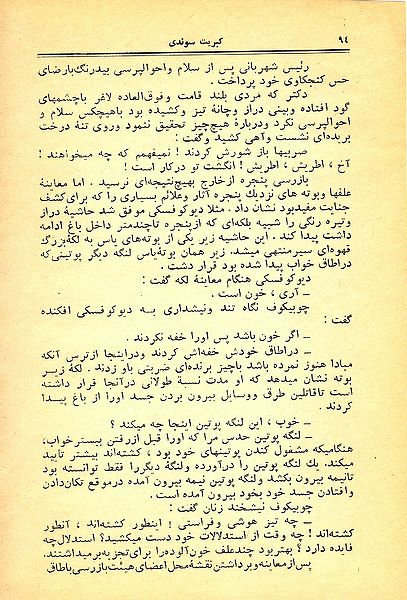 ۹٤ کبریت سوئدی
رئیس شهربانی پس از سلام و احوالپرسی بیدرنگ بارضای
حس کنجکاوی خود پرداخت .
دکتر که مردی بلند قامت وفوق‌العاده لاغر باچشمهای
گود افتاده وبینی دراز وچانهٔ تیز وکشیده بود باهیچکس سلام و
احوالپرسی نکرد ودربارهٔ هیچ‌چیز تحقیق ننمود وروی تنهٔ درخت
بریده‌ای نشست وآهی کشید وگفت :
صربیها باز شورش کردند ! نمیفهمم که چه میخواهند !
آخ ، اطریش ، اطریش ! انگشت تو درکار است !
بازرسی پنجره ازخارج بهیچ‌نتیجه‌ای نرسید . اما معاینهٔ
علفها وبوته های نزدیك پنجره آثار وعلائم بسیاری را که برای‌کشف
جنایت مفیدبود نشان داد . مثلا دیوکوفسکی موفق شد حاشیهٔ دراز
وتیره رنگی را شبیه بلکه‌ای که ازپنجره تاچندمتر داخل باغ ادامه
داشت پیدا کند . این حاشیه زیر یکی از بوته‌های یاس به لکهٔ‌بزرگ
قهوه‌ای سیرمنتهی میشد. زیر همان بوتهٔ‌یاس لنگه دیگر پوتینی‌که
دراطاق خواب پیدا شده بود قرار دشت .
دیوکوفسکی هنگام معاینهٔ لکه گفت :
ــ آری ، خون است .
چوبیکوف نگاه تند ونیشداری بـه دیوکوفسکی افکنده
گفت :
ــ اگر خون باشد پس اورا خفه نکردند .
ــ دراطاق خودش خفه‌اش کردند ودراینجا ازترس آنکه
مبادا هنوز نمرده باشد باچیز برنده‌ای ضربتی باو زدند . لکهٔ زیـر
بوته نشان میدهد که او مدت نسبةً طولانی درآنجا قرار داشته
است تاقاتلین طرق ووسایل بیرون بردن جسد اورا از باغ پیـدا
کردند .
ــ خوب ، این لنگه پوتین اینجا چه میکند ؟
ــ لنگه پوتین حدس مرا که اورا قبل ازرفتن ببسترخواب،
هنگامیکه مشغول کندن پوتینهای خود بود ، کشته‌اند بیشتر تایید
میکند. یك لنگه پوتین را درآورده ولنگهٔ دیگررا فقط توانسته بود
تانیمه بیرون بکشد ولنگه پوتین نیمه بیرون آمده درموقع تکان‌دادن
وافتادن جسد خود بخود بیرون آمده است .
چوبیکوف نیشخند زنان گفت :
ــ چه تیز هوشی وفراستی ! اینطور کشته‌اند ، آنطور
کشته‌اند ! چه وقت از استدلالات خود دست میکشید؟ استدلال‌چه
فایده دارد ؟ بهتربود چندعلف خون‌آلوده‌را برای‌تجزیه‌برمیداشتند.
پس‌از معاینه و برداشتن نقشهٔ محل اعضای هیئت بازرسی باطاق